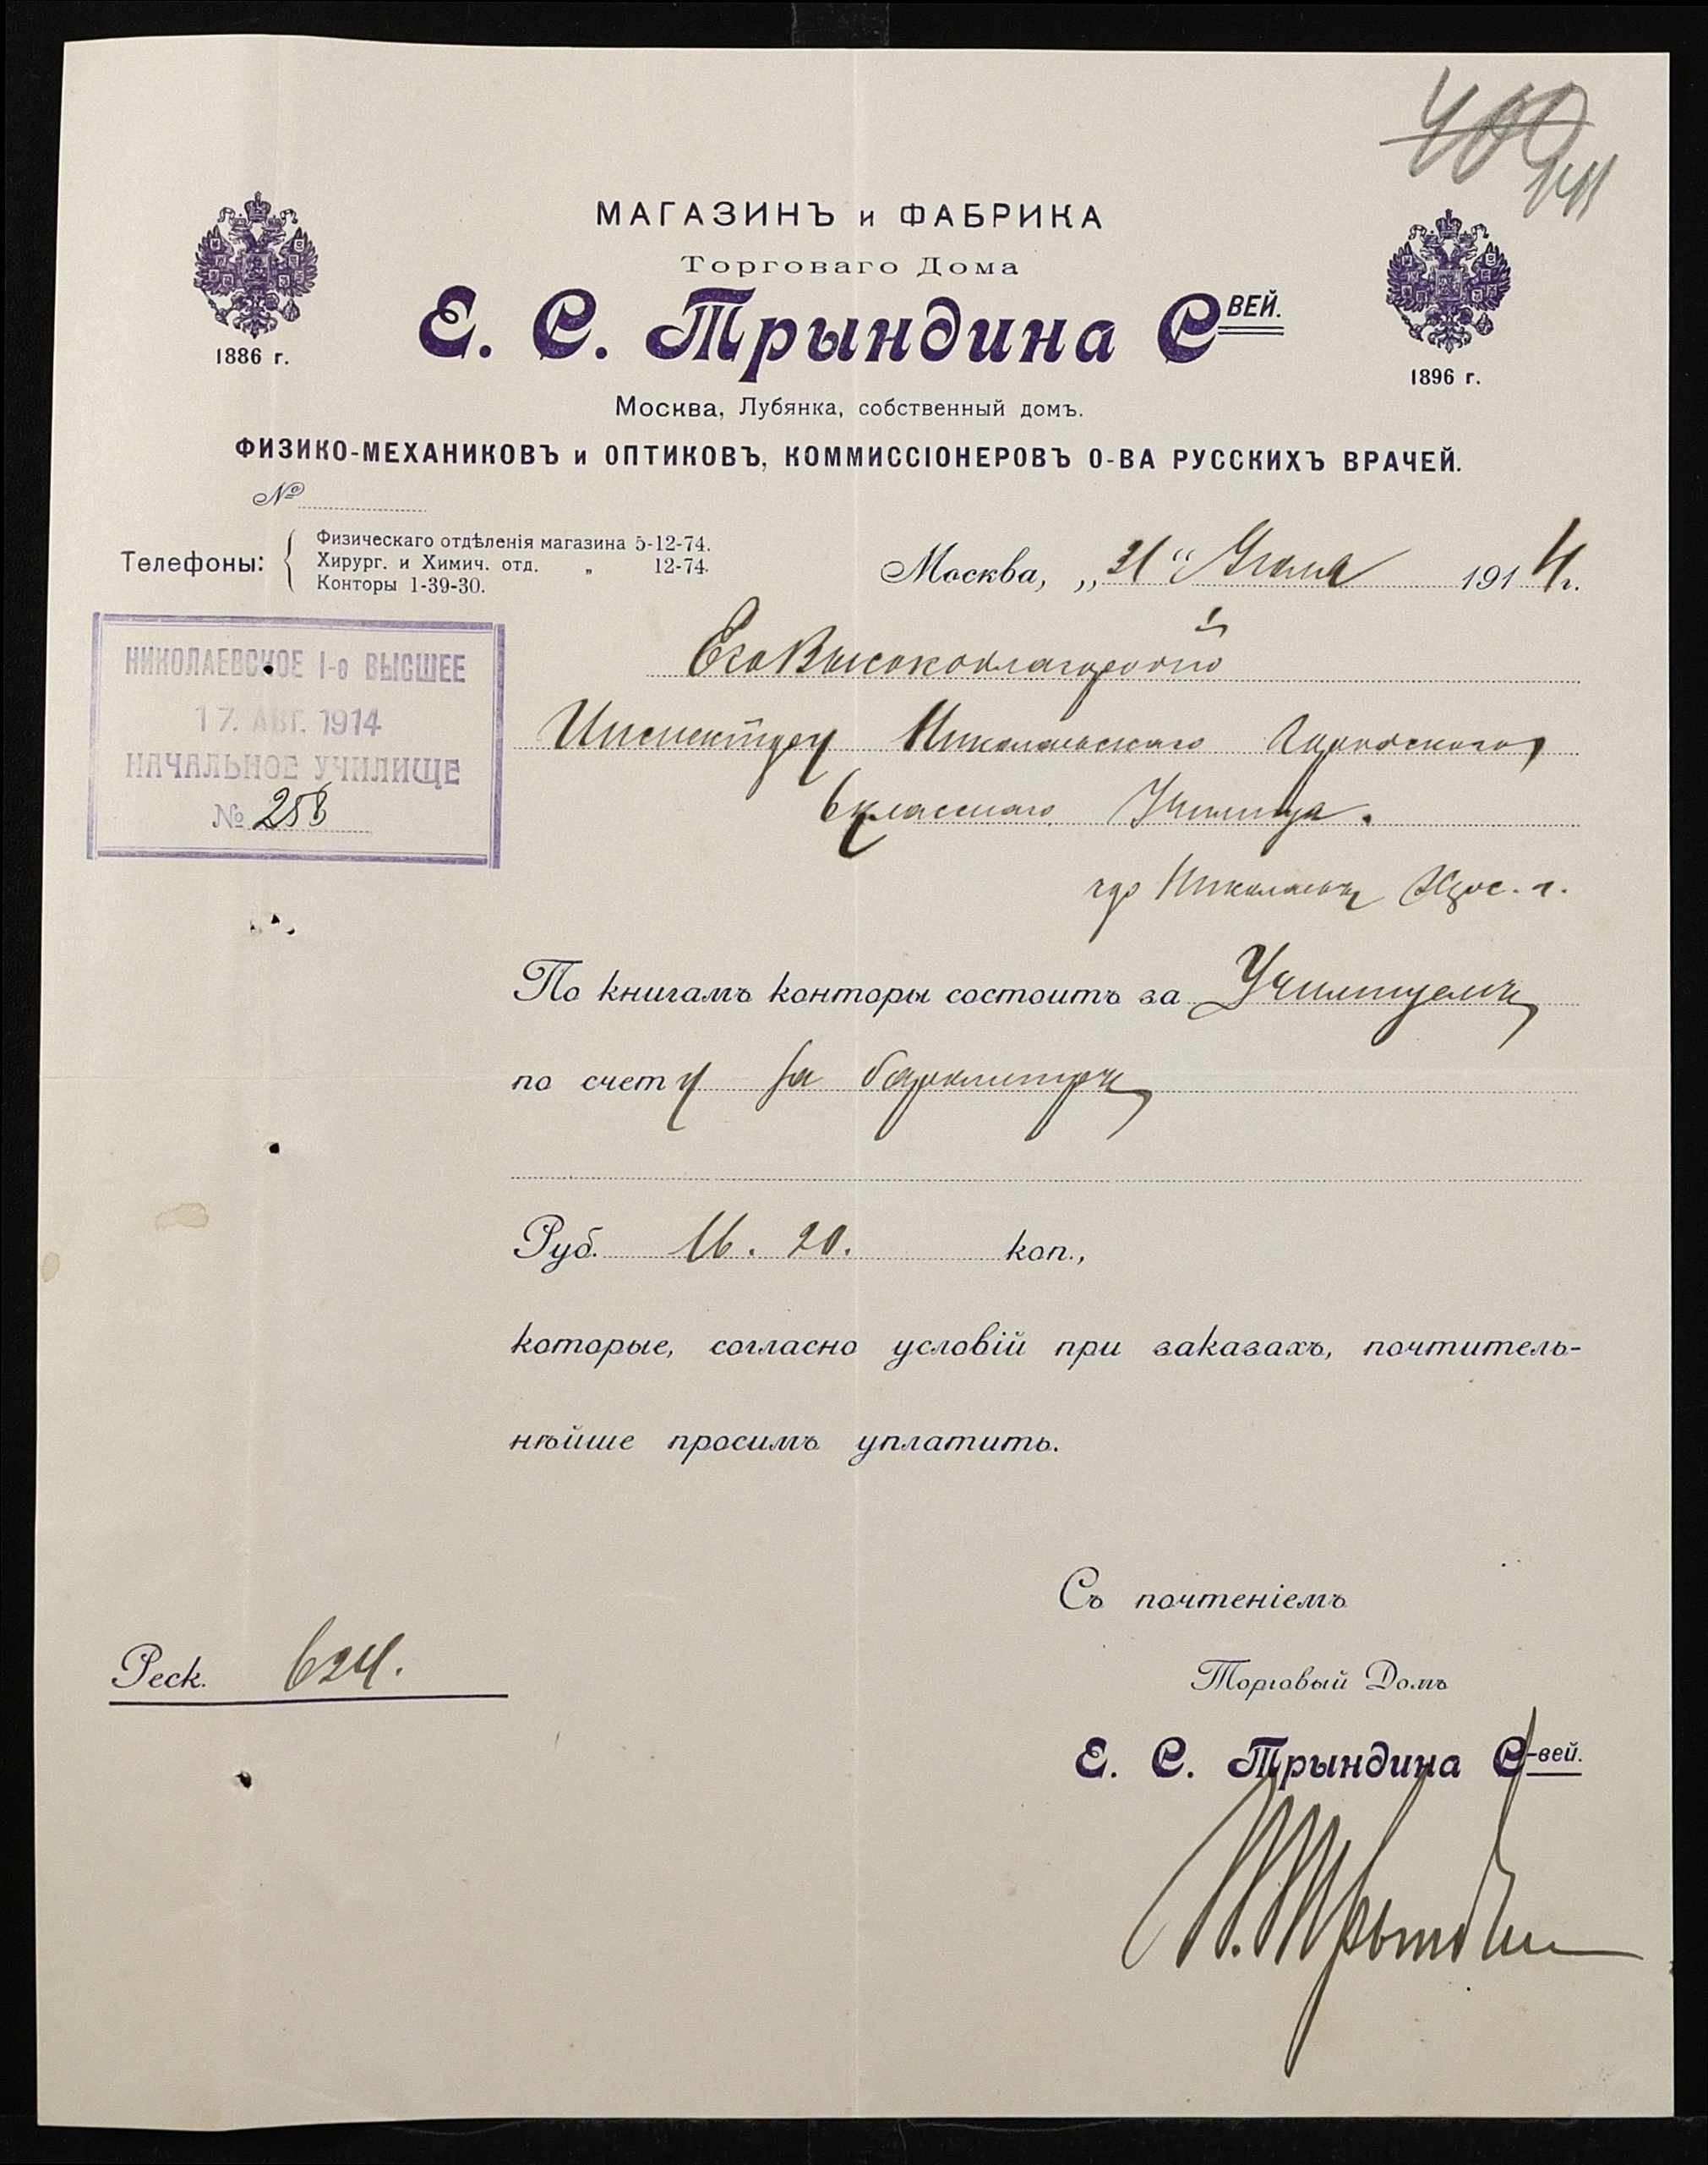 400
141
МАГАЗИНЪ и ФАБРИКА
Торговаго Дома
Е. С. Трындина С-ВЕЙ.
1886 г.
1896 г.
Москва, Лубянка, собственный домъ.
ФИЗИКО-МЕХАНИКОВЪ и ОПТИКОВЪ, КОММИССІОНЕРОВЪ О-ВА РУССКИХЪ ВРАЧЕЙ.
№
Телефоны:
Физическаго отдѣленія магазина 5-12-74.
Хирург. и Химич. отд. „ 12-74.
Конторы 1-39-30.
Москва, „31“ 1914 г.
НИКОЛАЕВСКОЕ I-о ВЫСШЕЕ
17. АВГ. 1914
НАЧАЛЬНОЕ УЧИЛИЩЕ
№ 258
Его Высокоблагородію
Инспектору Николаевскаго Городского
6 класснаго Училища.
гор Николаевъ Херс. г.
По книгамъ конторы состоитъ за Училищемъ
по счету за
Руб. 16. 20. коп.,
которые, согласно условій при заказахъ, почтитель-
нѣйше просимъ уплатить.
Съ почтеніемъ
Торговый Домъ
Реск. 624.
Е. С. Трындина С-вей.